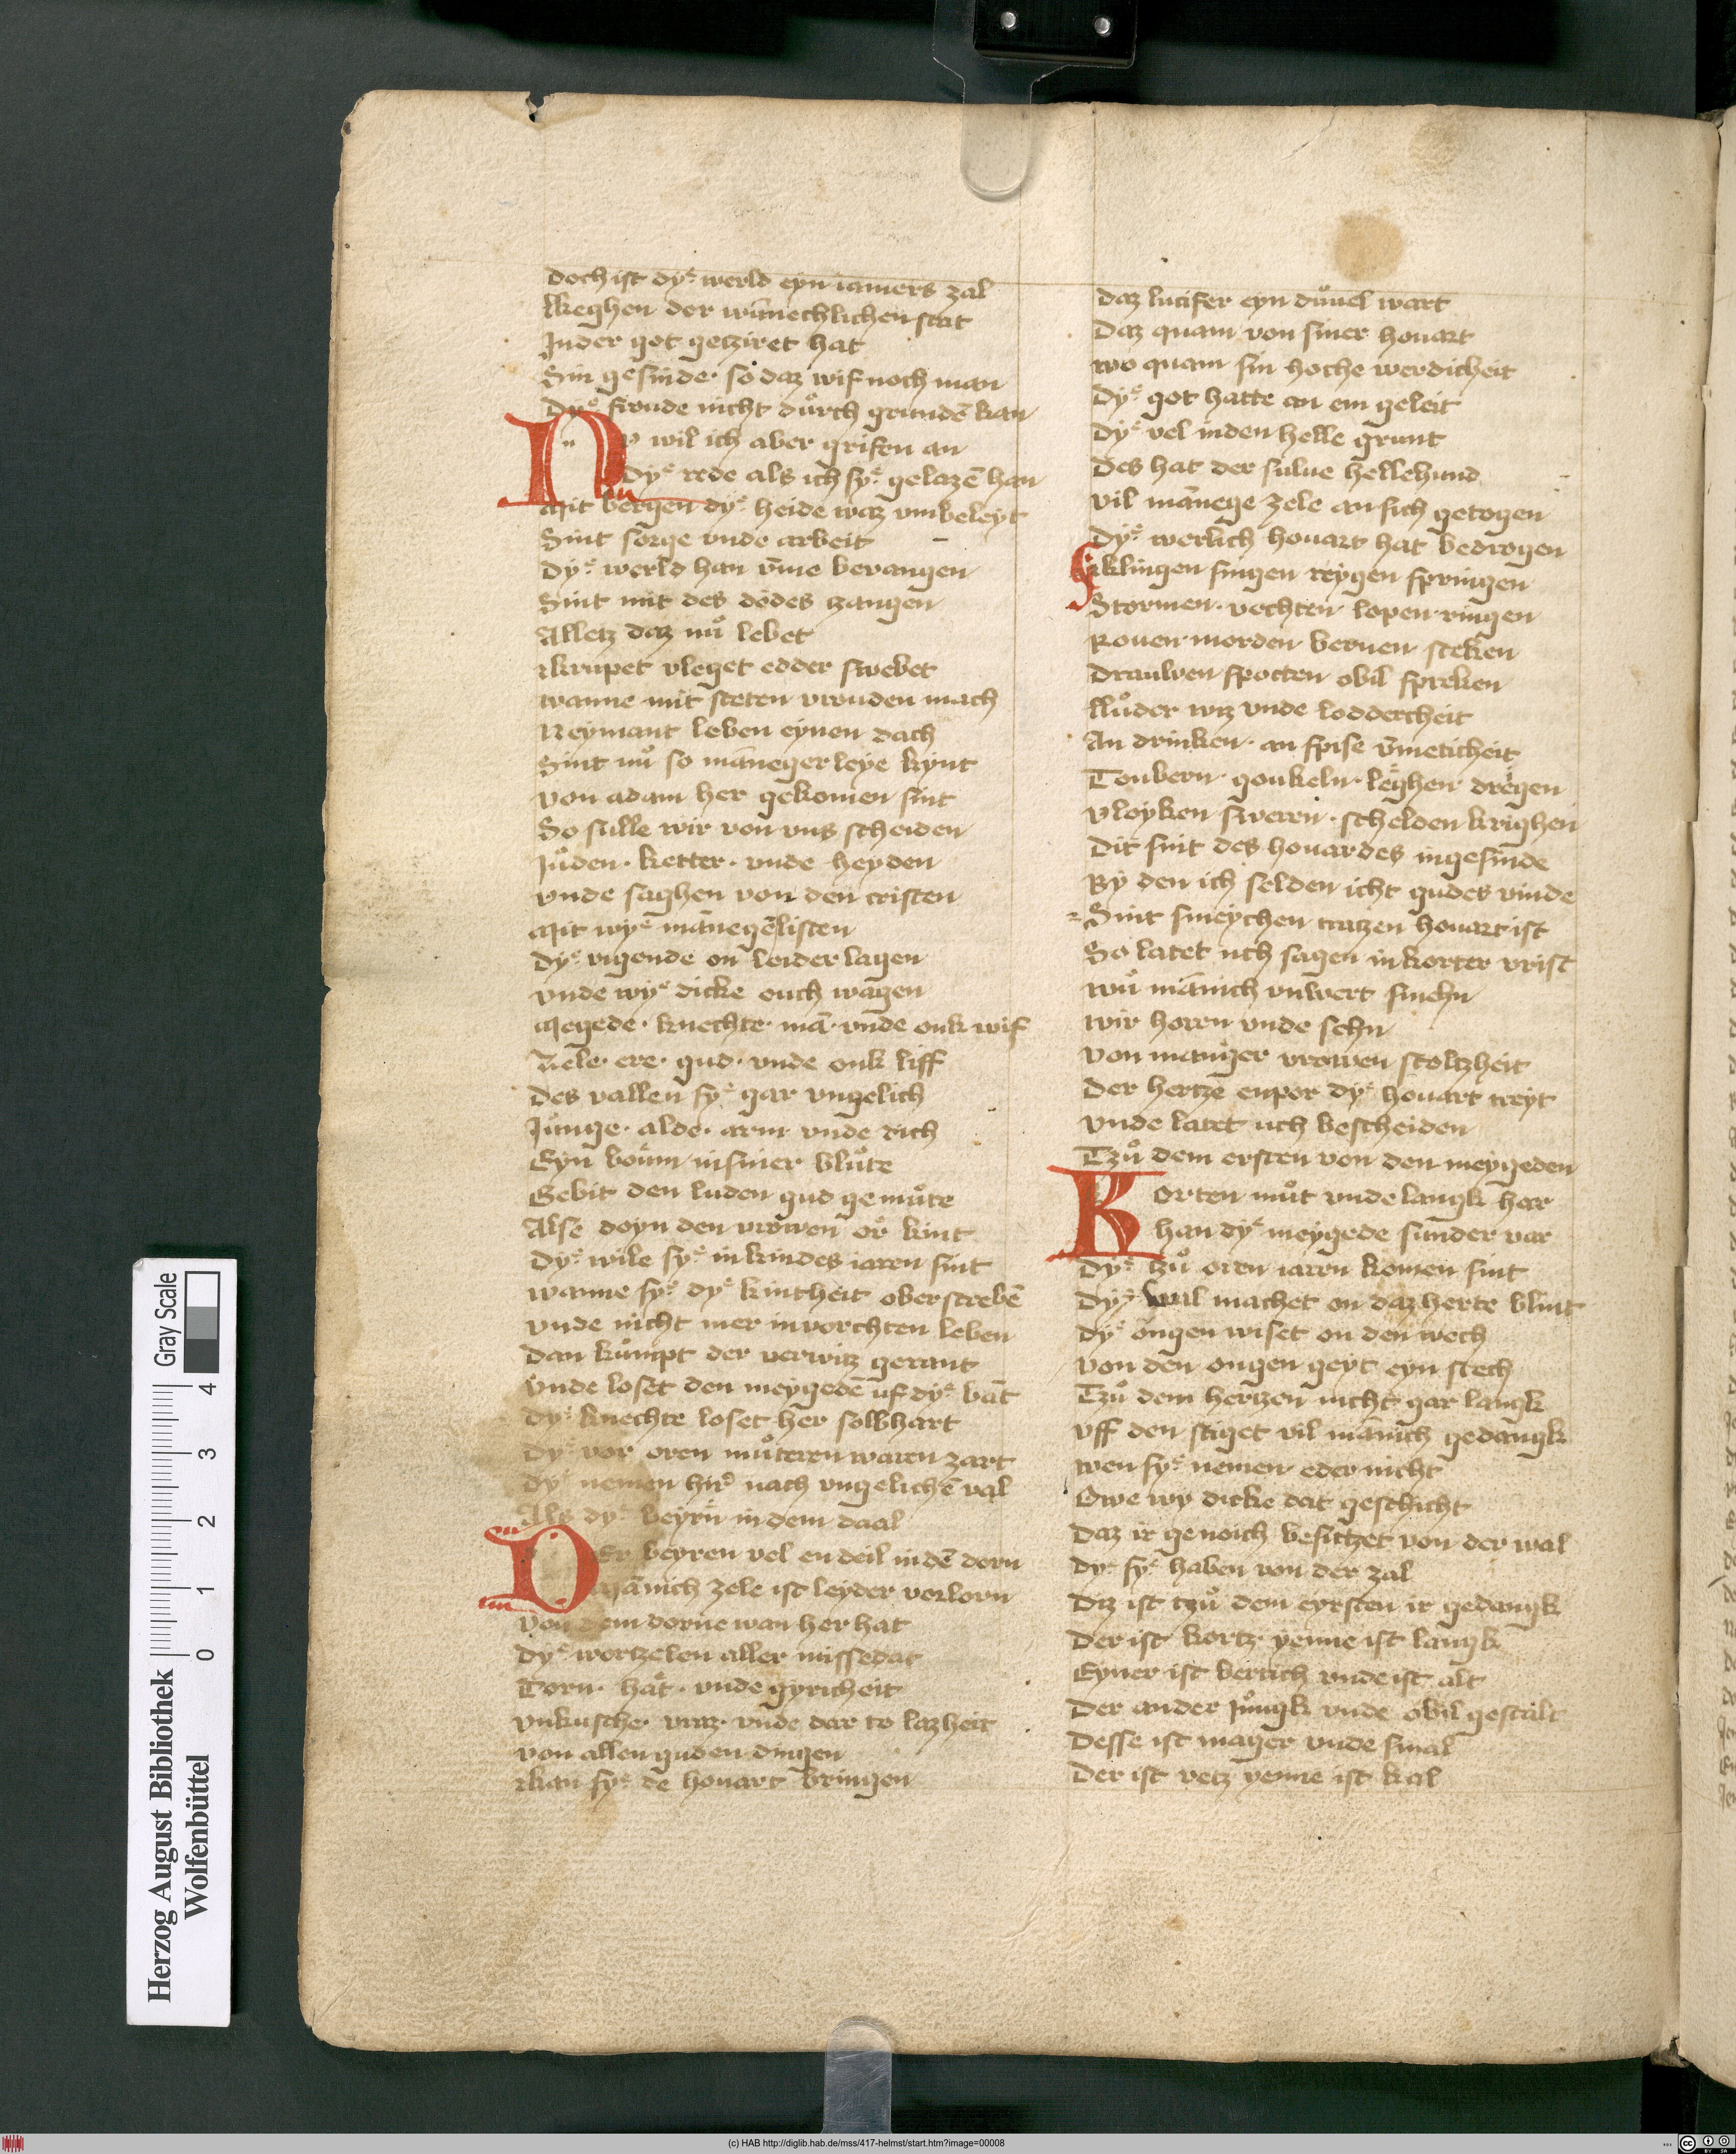 doch ist dyͤ werld eyn iamers zal
Keghen der wūnechlichen stat
In der got getziret hat
Sin gesinde· so daz wif noch man
Dyͤ froude nicht duͦrch grundē kan
Nv wil ich aber grifen an
Dyͤ rede als ich syͤ gelazē han
Mit bergen dyͤ heide waz vmbeleyt
Sint sorge vnde arbeit
Dyͤ werld han v̄me bevangen
Sint mit des dodes tzangen
Alletz daz nuͦ lebet
Krupet vleget edder swebet
wanne mit steten vrouden mach
Neymant leben eynen dach
Sint nuͦ so māneger leye kynt
von adam her gekomen sint
So sulle wir von vns scheiden
Juͦden· ketter· vnde heyden
vnde saghen von den cristen
Mit wyͤ mānegē listen
Dyͤ vigende on leider lagen
vnde wyͤ dicke ouch wagen
Megede· knechte· mā· vnde ouk wif
Zele· ere· gud· vnde ouk liff
Des vallen syͤ gar vngelich
Juͦnge· alde· arm vnde rich
Eyn boum in siner bluͦte
Gebit den luden gud gemuͦte
Alse doyn den vrowen or kint
Dyͤ wile syͤ in kindes iaren sint
wanne syͤ dyͤ kintheit oberstrebē
vnde nicht mer in vorchten leben
Dan kuͦmpt der verwitz gerant
vnde loset den meygedē uf dyͤ bāt
Dyͤ knechte loset her solbhart
Dyͤ vor oren muͦteren waren zart
Dyͤ nemen hir nach vngelichē val
Als dyͤ beyrn in dem daal
Der beyren vel en deil in dē dorn
Mānich zele ist leyder verlorn
Von dem dorne wan her hat
Dyͤ wortzelen aller missedat
Torn· hat· vnde gyricheit
vnkusche· vraz· vnde dar to lazheit
von allen guden dingen
Kan syͤ de houart bringen
Daz lucifer eyn duͦuel wart
Daz quam von siner houart
wo quam sin hoche werdicheit
Dyͤ got hatte an em geleit
Dyͤ vel in den helle grunt
Des hat der sulue hellehund
vil mānege zele an sich getogen
Dyͤ werlich houart hat bedrogen
Klingen singen reygen springen
Stormen· vechten lopen ringen
Rouen morden bernen steken
Drauwen spotten obil spreken
Luͦder witz vnde loddercheit
An drinken· an spise v̄meticheit
Toubern· goukeln· leghen dregen
vloyken sweren· schelden krighen
Dit sint des houardes ingesinde
By den ich selden icht gudes vinde
Sint smeychen tratzen houart ist
So latet uch sagen in korter vrist
wuͦ mānich vnwert smehn
wir horen vnde sehn
von manger vrowen stoltzheit
Der hertzē enpor dyͤ houart treyt
vnde latet uch bescheiden
Tzuͦ dem ersten von den meygeden
Korten muͦt vnde langk har
han dyͤ meygede sunder var
Dyͤ tzuͦ oren iaren komen sint
Dyͤ wal machet on daz herte blint
Dyͤ ougen wiset on den wech
von den ougen geyt eyn stech
Tzuͦ dem hertzen nicht gar langk
vff den stiget vil mānich gedangk
wen syͤ nemen eder nicht
Owe wy dicke dat geschicht
Daz ir genoich besitzet von der wal
Dyͤ syͤ haben von der zal
Ditz ist tzuͦ dem eyrsten ir gedangk
Der ist kortz yenne ist langk
Eyner ist bertich vnde ist alt
Der ander Juͦngk vnde obil gestalt
Desse ist mager vnde smal
Der ist vetz yenne ist kal
Herzog August Bibliothek
Wolfenbüttel
0 1 2 3 4
Gray Scale
(c) HAB http://diglib.hab.de/mss/417-helmst/start.htm?image=00008